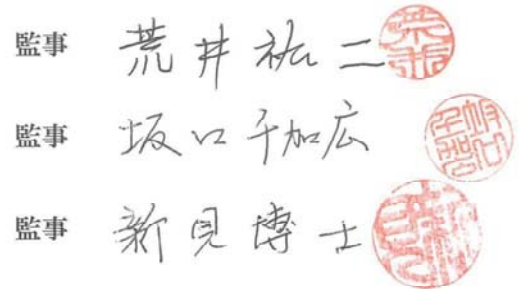 監事 荒井祐二
監事 坂口千加広
監事 新見博士